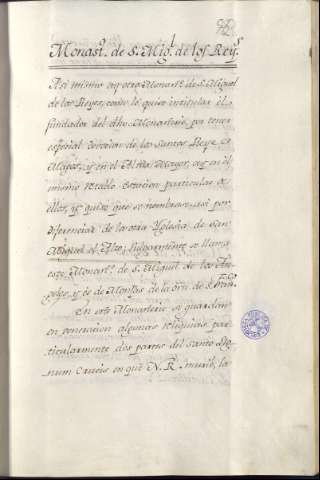 Monastº. de S. Migl. de los Reyˢ.
Asi mismo ay otro Monastº. de S. Miguel
de los Reyes, como lo quiso intitular el
fundador del dho. Monasterio, por tener
especial devocion de los Santos Reyes
Magos, y en el Altar Mayor, ay en el
mismo retablo estacion particular de
ellos, y quiso que se nombrara asi por
diferenciar de la otra Yglesia de San
Miguel el Alto, vulgarmente se llama
este Monastº. de S. Miguel de los
y es de Monjas de la Orn. de S.
En este Monasterio se guardan
en veneracion algunas reliquias par
ticularmente dos partes del Santo Lig
num Crucis en que N. R. murió, la